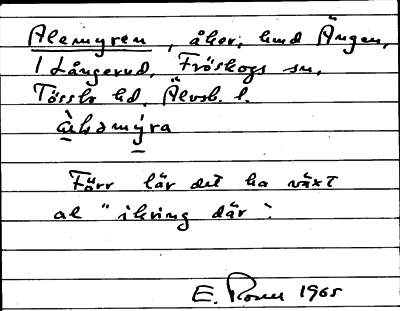 Alemyren, åker, hmd Ängen,
1 Långerud, Fröskogs sn,
Tössbo hd, Älvsb. l.
àḷəmýra
Förr lär det ha växt
al "ikring där".
E. Rosen 1965